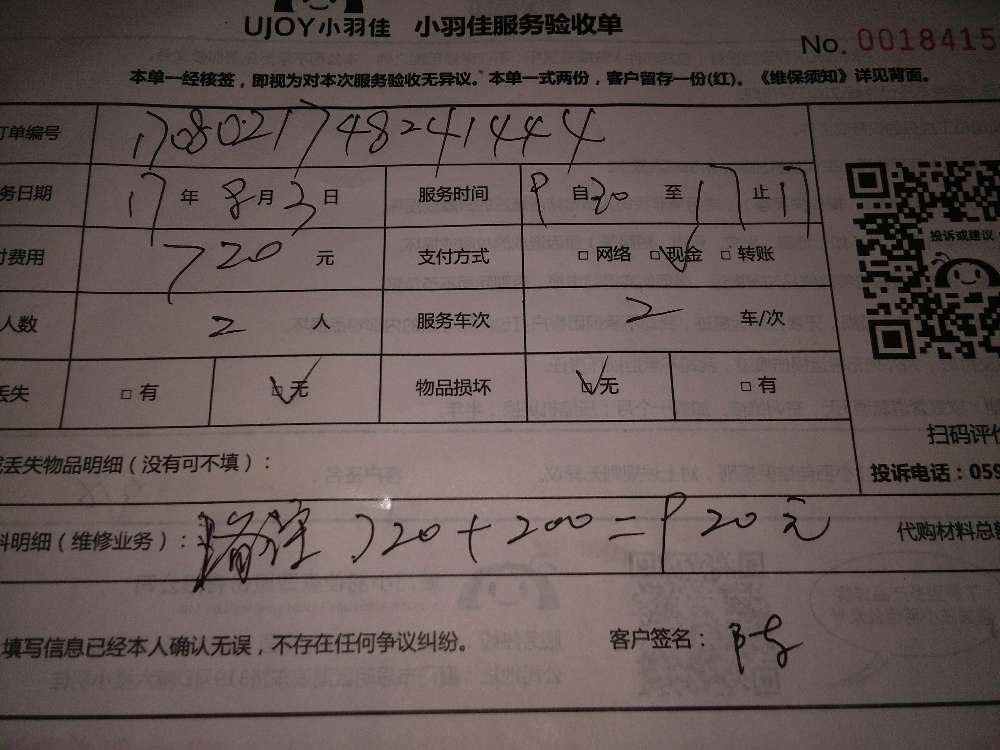 UJOY小羽佳 小羽佳服务验收单
No. 0018415
本单一经核签，即视为对本次服务验收无异议。本单一式两份，客户留存一份(红)。《维保须知》详见背面。
订单编号 1708021748241444
务日期 17年8月3日 服务时间 9 自20 至17止17
付费用 720 元 支付方式 □ 网络 □ 现金 □ 转账
人数 2 人 服务车次 2 车/次
丢失 □ 有 □ 无 物品损坏 □ 无 □ 有
投诉或建议
扫码评价
丢失物品明细（没有可不填）：
投诉电话：059
料明细（维修业务）： 720+200=920元 代购材料总
填写信息已经本人确认无误，不存在任何争议纠纷。 客户签名：